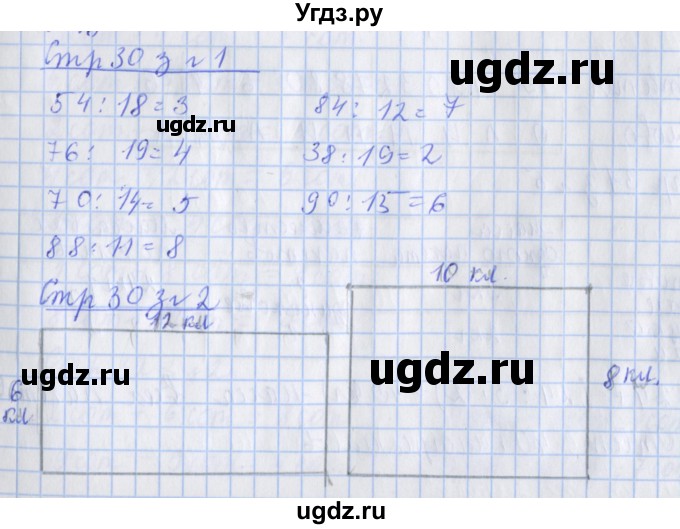 Угдз.ру
Стр 30 з № 1
ugdz.ru
54 : 18 = 3 84 : 12 = 7
ugdz.ru
76 : 19 = 4 38 : 19 = 2
70 : 14 = 5 90 : 15 = 6
88 : 11 = 8
10 кл.
Стр 30 з № 2
12 кл
ugdz.ru ugdz.ru
6 кл
8 кл.
ugdz.ru